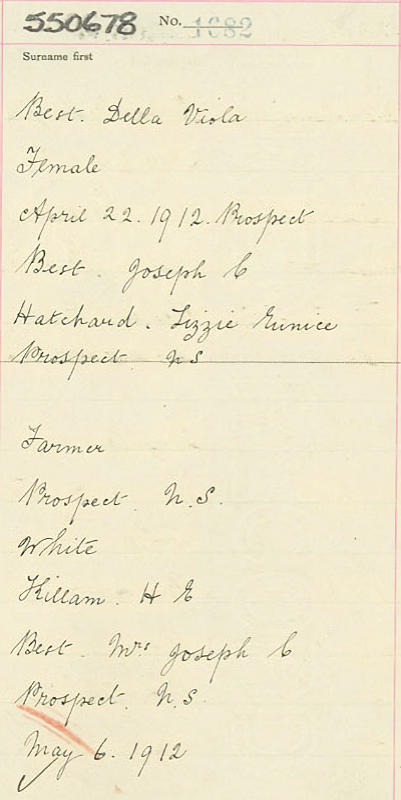 550678 No. 1682
Surname first
Best. Della Viola
Female
April 22. 1912. Prospect
Best. Joseph C
Hatchard. Lizzie Eunice
Prospect N S
Farmer
Prospect. N.S.
White
Killam. H E
Best. Mrs Joseph C
Prospect. N.S.
May 6. 1912